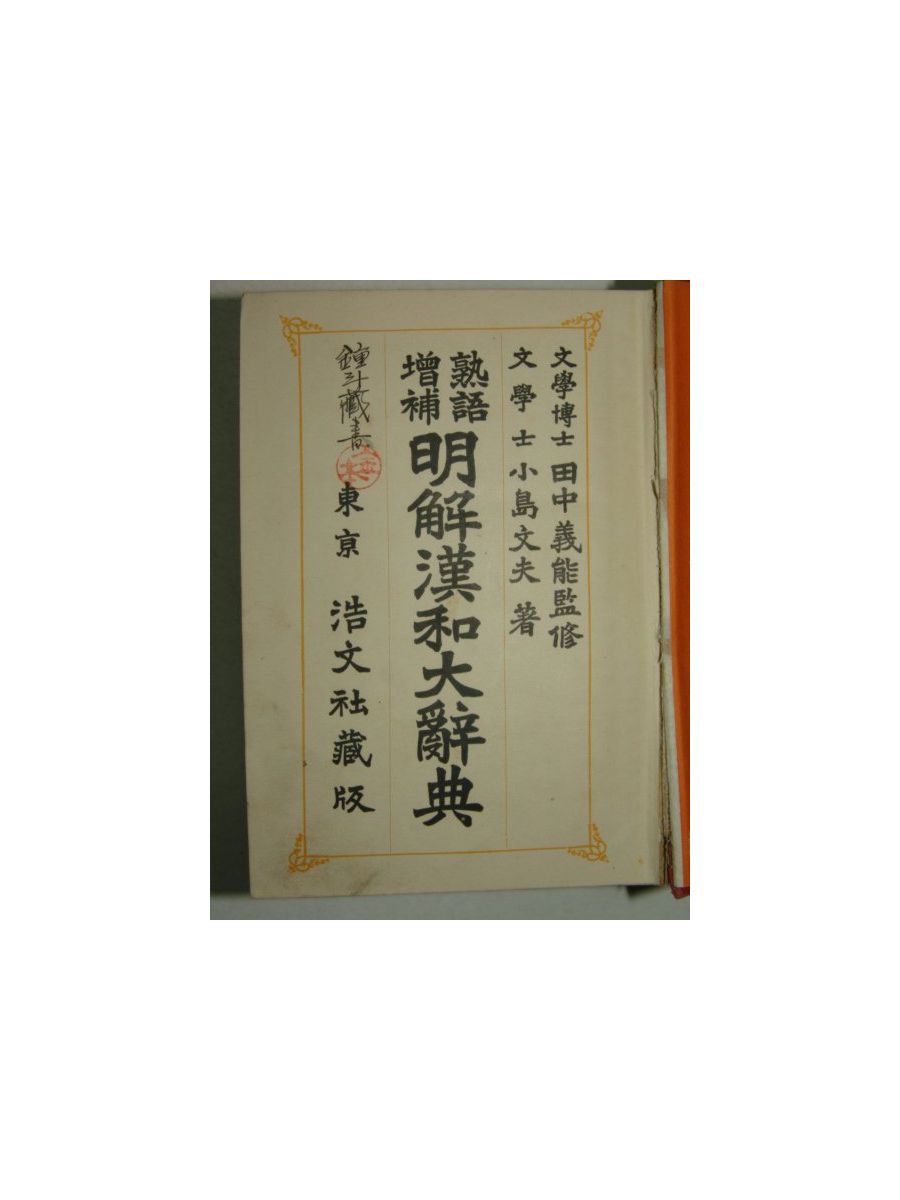 文學博士 田中義能監修
文學士 小島文夫 著
熟語
增補
明解漢和大辭典
鐘斗藏書
東京 浩文社藏版